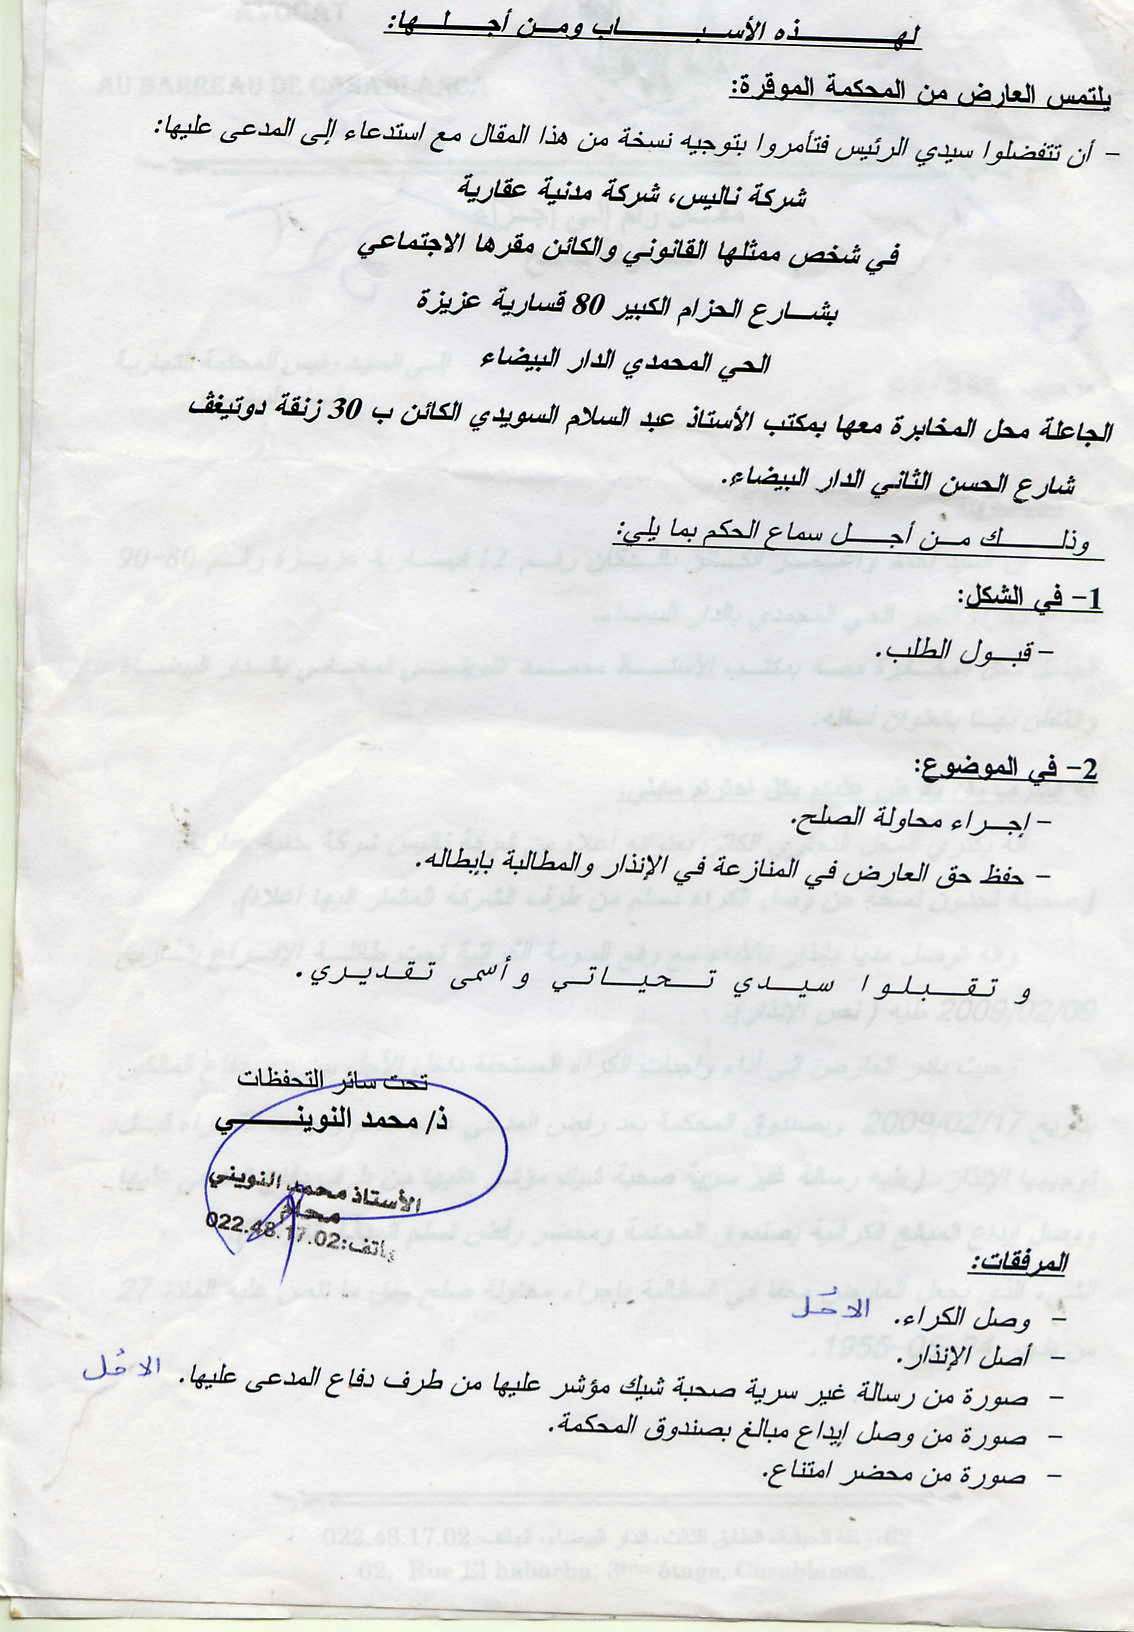 لهـــذه الأسبـــاب ومـن أجـلـــها:
يلتمس العارض من المحكمة الموقرة:
- أن تتفضلوا سيدي الرئيس فتأمروا بتوجيه نسخة من هذا المقال مع استدعاء إلى المدعى عليها:
شركة ناليس، شركة مدنية عقارية
في شخص ممثلها القانوني والكائن مقرها الاجتماعي
بشـــارع الحزام الكبير 80 قسارية عزيزة
الحي المحمدي الدار البيضاء
الجاعلة محل المخابرة معها بمكتب الأستاذ عبد السلام السويدي الكائن ب 30 زنقة دوتيغڤ
شارع الحسن الثاني الدار البيضاء.
وذلـــــك مـــن أجـــل سماع الحكم بما يلي:
1- في الشكل:
- قبـــول الطلب.
2- في الموضوع:
- إجـــراء محاولة الصلح.
- حفظ حق العارض في المنازعة في الإنذار والمطالبة بإبطاله.
وتقـبـلـوا سيـدي تـحيـاتـي وأسمى تقـديـري.
تحت سائر التحفظات
ذ/ محمد النوينـــــي
الأستاذ محمد النويني
محام
هاتف:022.48.17.02
المرفقات:
- وصل الكراء. الأصل
- أصل الإنذار.
- صورة من رسالة غير سرية صحبة شيك مؤشر عليها من طرف دفاع المدعى عليها. الأصل
- صورة من وصل إيداع مبالغ بصندوق المحكمة.
- صورة من محضر امتناع.